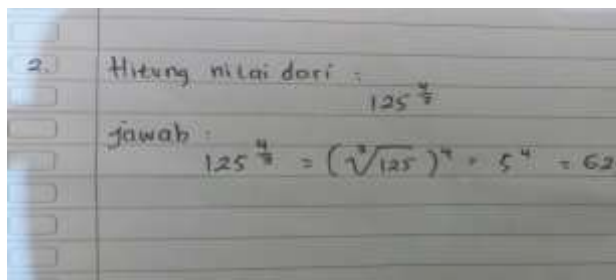 2. Hitung nilai dari :
125^{4/3}
jawab :
125^{4/3} = (∛125)^4 = 5^4 = 62